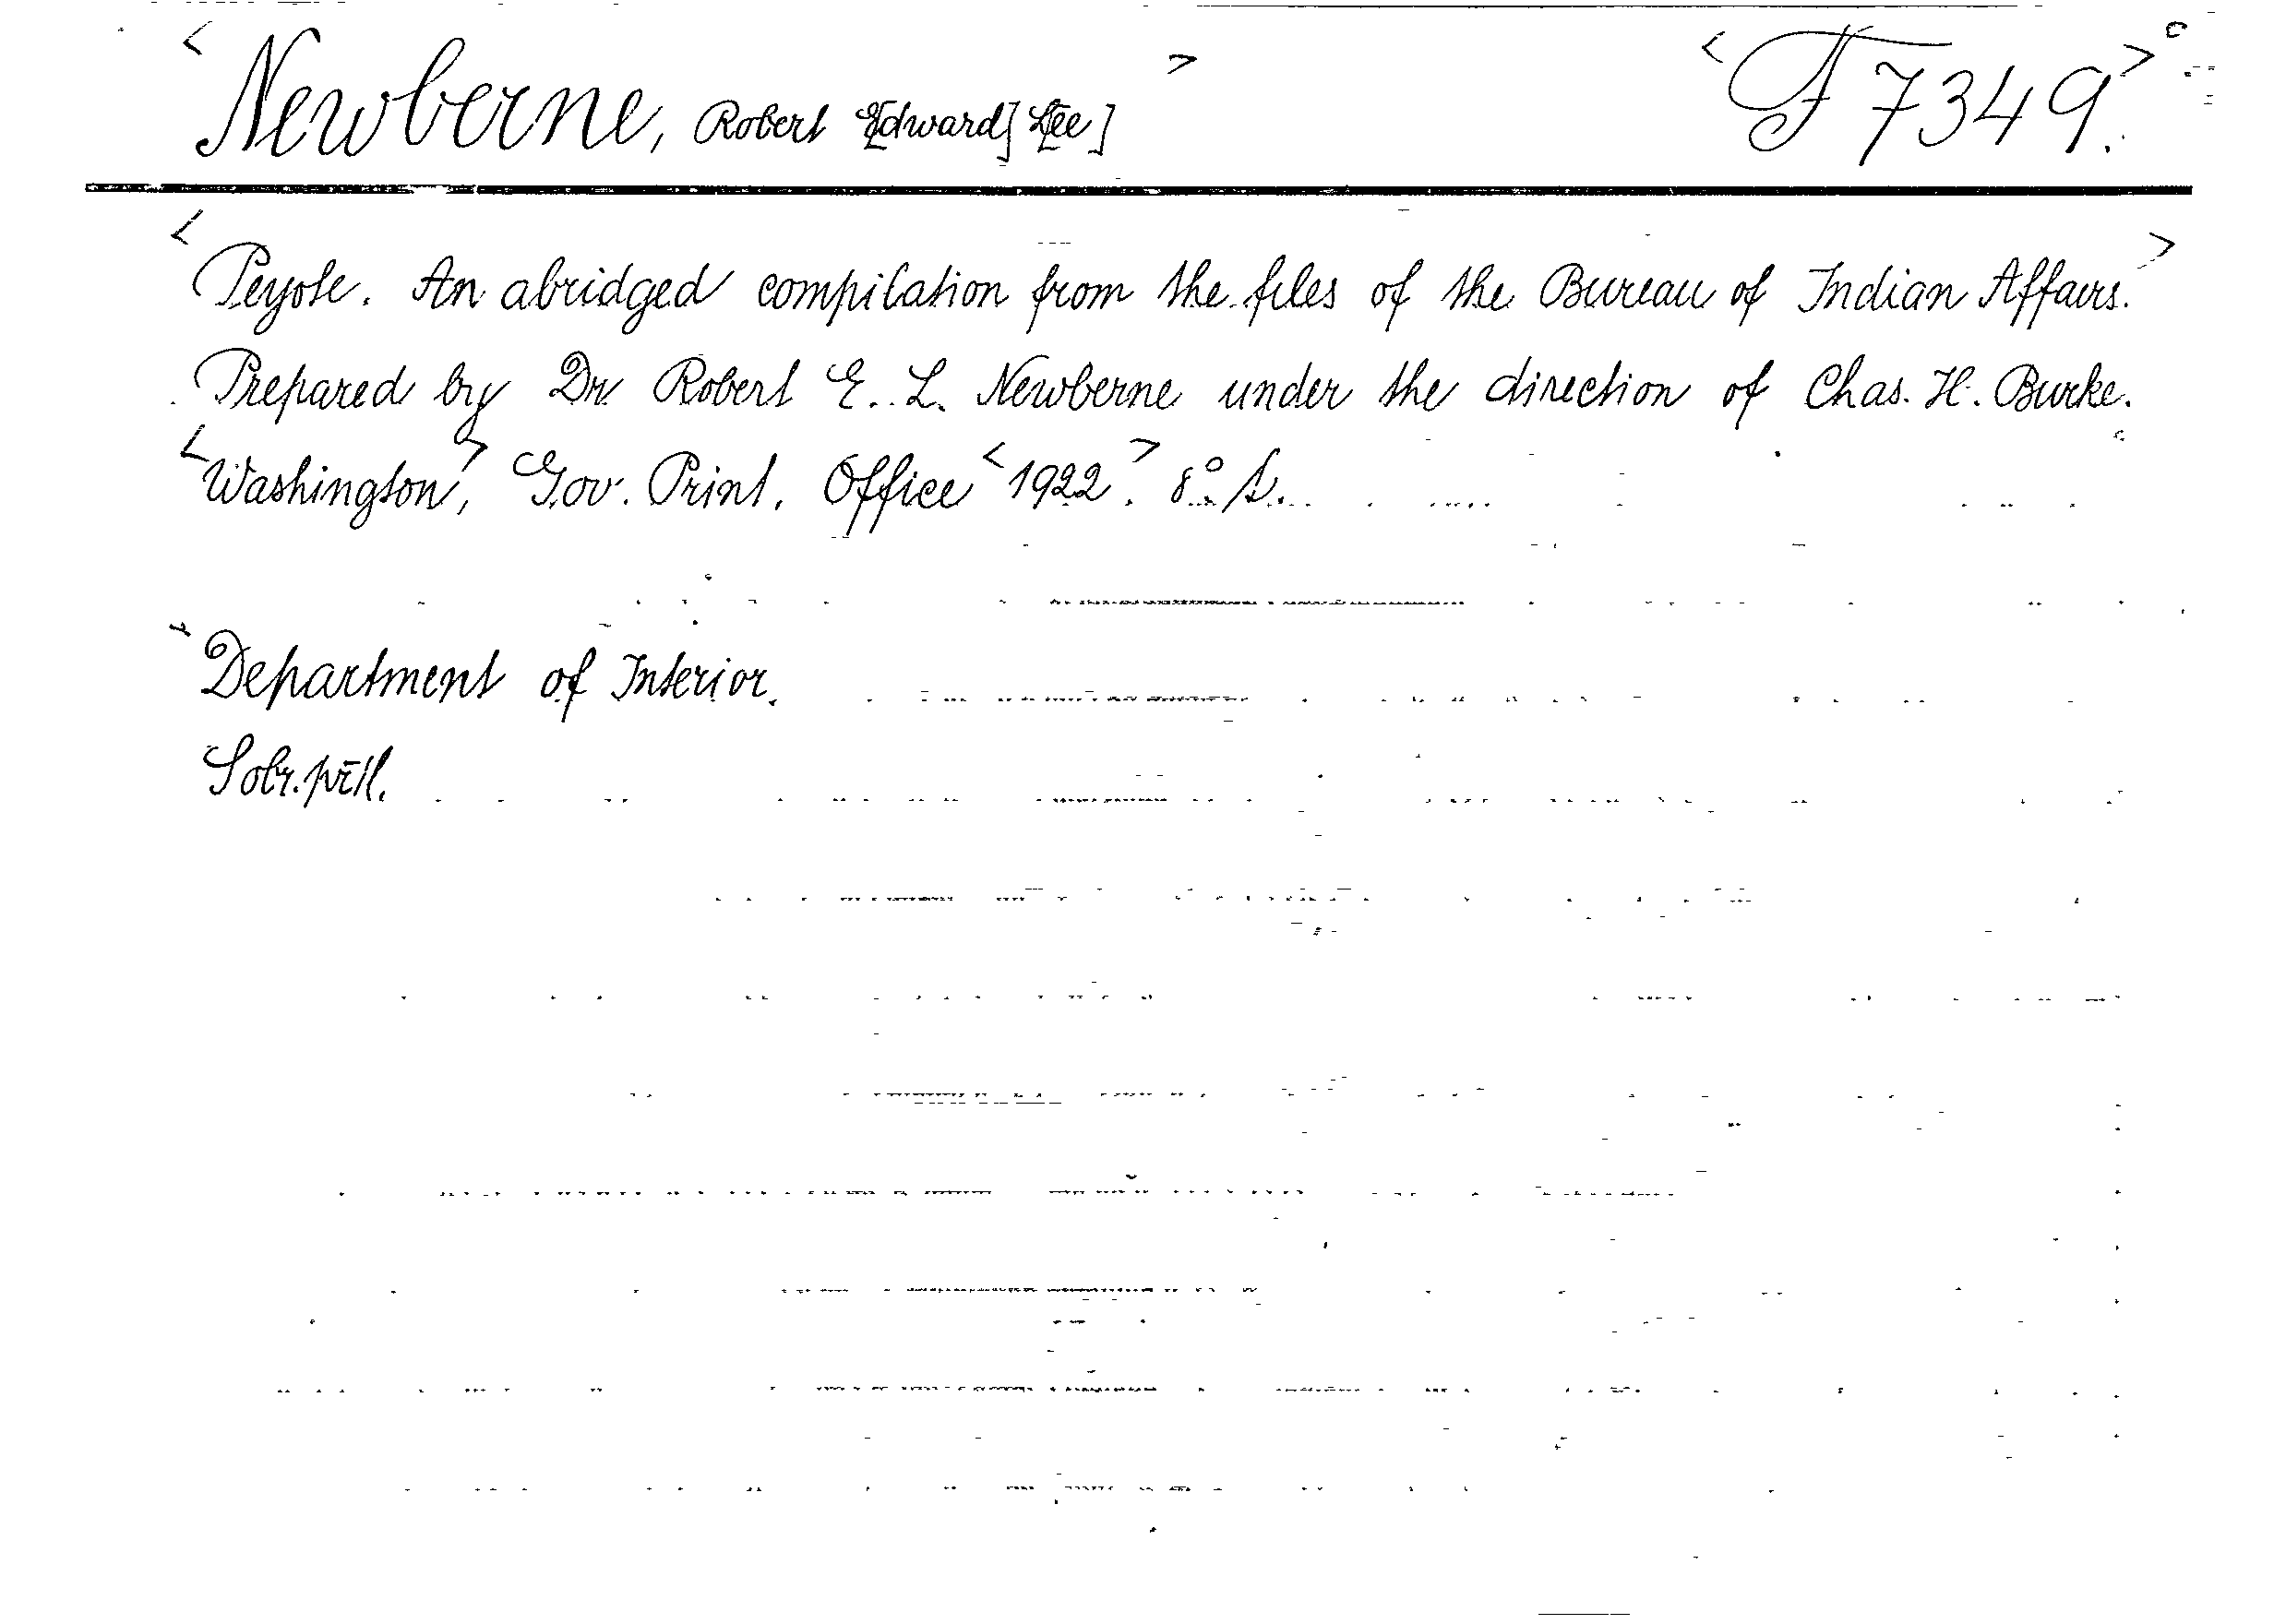 <Newberne, Robert E[dward] L[ee]> <F 7349.>
<Peyote. An abridged compilation from the files of the Bureau of Indian Affairs.>
Prepared by Dr. Robert E. L. Newberne under the direction of Chas. H. Burke.
<Washington>, Gov. Print. Office <1922>. 8°.
Department of Interior.
Sobr. příl.